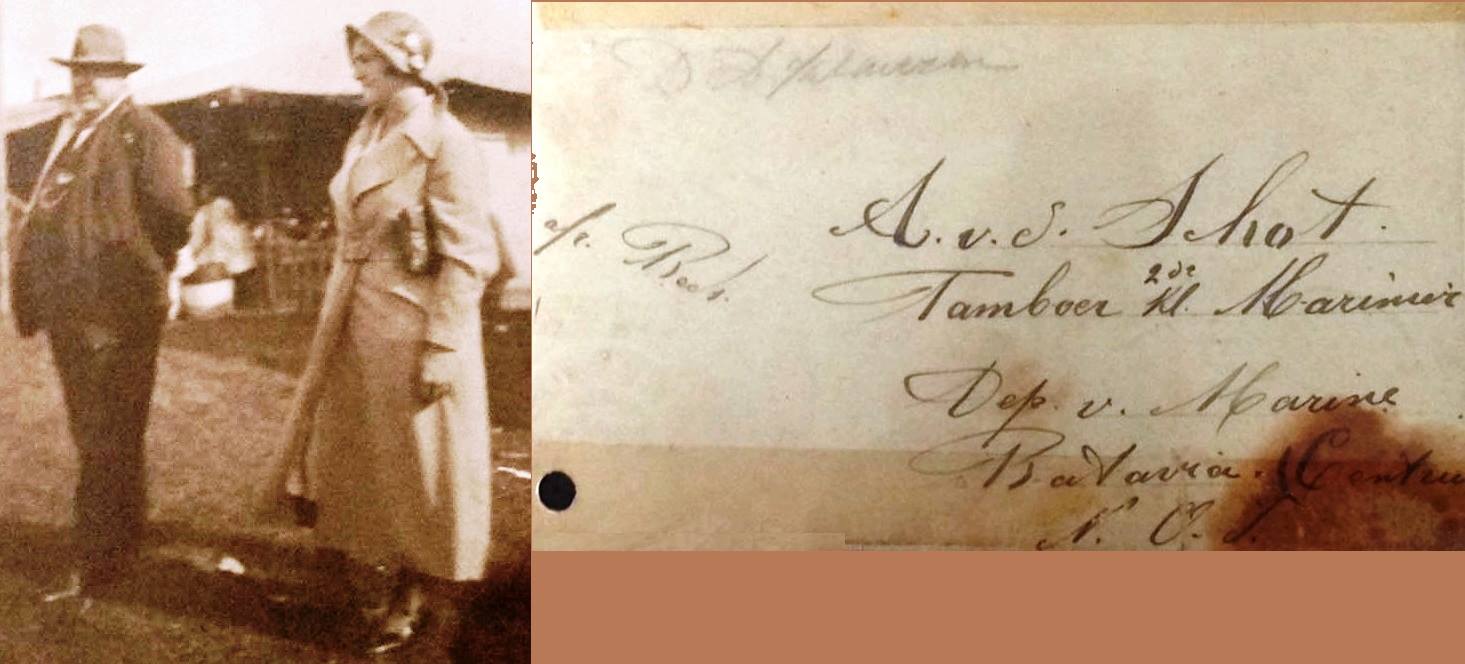 A. v. d. Schot.
Tamboer 2de Kl. Marinier
Dep. v. Marine
Batavia. Centru
N. O. I.